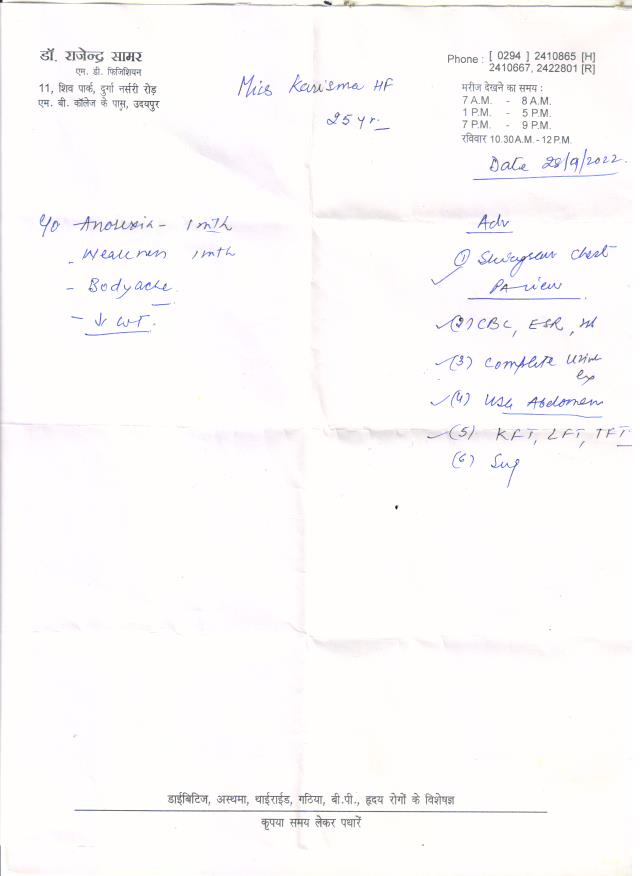 डॉ. राजेन्द्र सामर
एम. डी. फिजिशियन
11, शिव पार्क, दुर्गा नर्सरी रोड़
एम. बी. कॉलेज के पास, उदयपुर
Phone : [ 0294 ] 2410865 [H]
2410667, 2422801 [R]
मरीज देखने का समय :
7 A.M. - 8 A.M.
1 P.M. - 5 P.M.
7 P.M. - 9 P.M.
रविवार 10.30 A.M. - 12 P.M.
Miss Karisma
25 yr.
Date 28/9/2022.
C/o Anorexia - 1 mth
- Weakness 1 mth
- Bodyache
- ↓ WT.
Adv
(1) chest
PA view
(2) CBC, ESR,
(3) Complete Urine
Ex
(4) USG Abdomen
(5) KFT, LFT, TFT
(6)
डाईबिटिज, अस्थमा, थाईराईड, गठिया, बी.पी., हृदय रोगों के विशेषज्ञ
कृपया समय लेकर पधारें